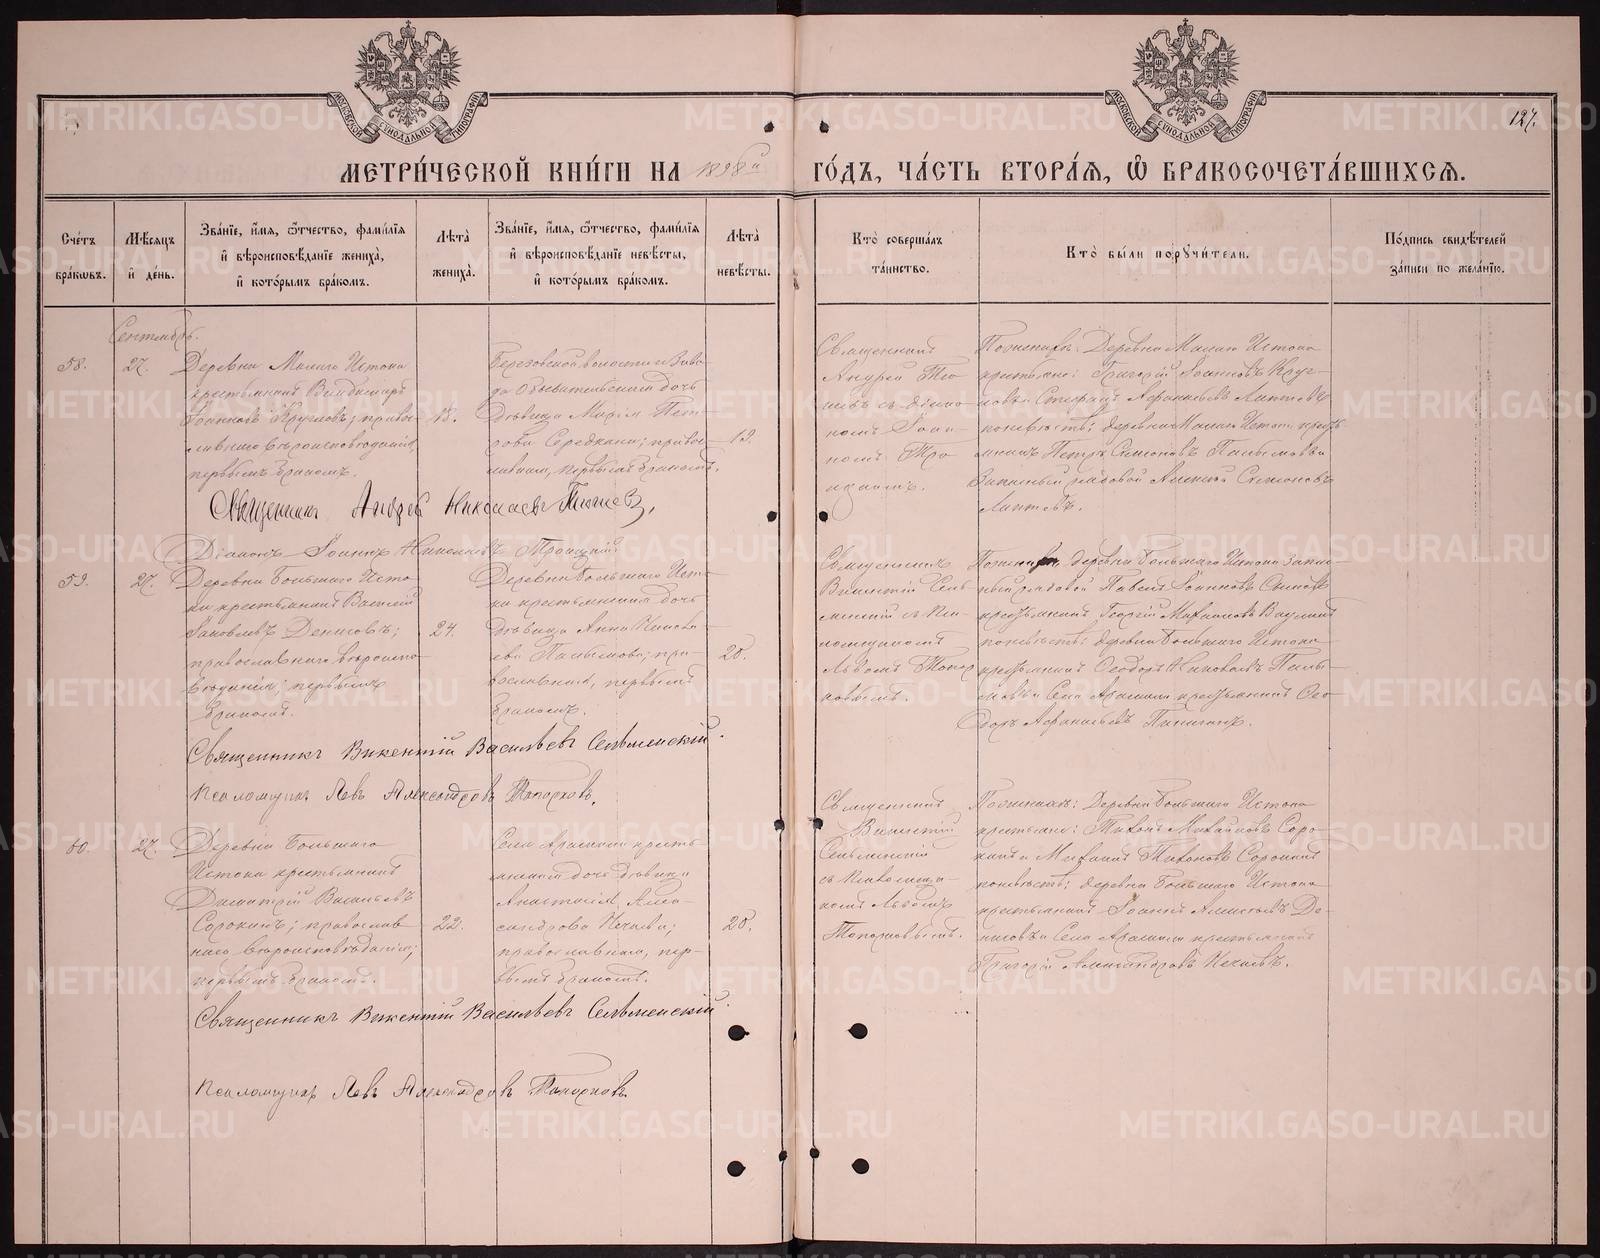 127.
МЕТРИ́ЧЕСКОЙ КНИ́ГИ НА 1898й ГО́ДЪ, ЧА́СТЬ ВТОРА́Я, Ѡ БРАКОСОЧЕТА́ВШИХСЯ.
Счетъ браковъ.
Мѣсяцъ и день.
Званіе, имя, отчество, фамилія и вѣроисповѣданіе жениха, и которымъ бракомъ.
Лѣта жениха.
Званіе, имя, отчество, фамилія и вѣроисповѣданіе невѣсты, и которымъ бракомъ.
Лѣта невѣсты.
Кто совершалъ таинство.
Кто были поручители.
Подпись свидѣтелей записи по желанію.
Сентябрь.
58.
27.
Деревни Малаго Истока
крестьянинъ
Іоанновъ Кругловъ; право-
славнаго вѣроисповѣданія,
первымъ бракомъ.
18.
Березовской волости
дочь
дѣвица Марія Пет-
рова Середкина; право-
славная, первымъ бракомъ.
19.
Священникъ
Андрей Тю-
шевъ съ діако-
номъ Іоан-
номъ Тро-
ицкимъ.
По женихѣ: Деревни Малаго Истока
крестьяне: Григорій Іоанновъ Круг-
ловъ и Стефанъ Афанасьевъ Лаптевъ
по невѣстѣ: деревни Малаго Истока крест-
янинъ Петръ Симеоновъ
Запасный рядовой Алексій Симеоновъ
Лаптевъ.
Священникъ Андрей Николаевъ Тюшевъ,
Діаконъ Іоаннъ Троицкій
59.
27.
Деревни Большаго Исто-
ка крестьянинъ Василій
Іаковлевъ Денисовъ;
православнаго вѣроиспо-
вѣданія; первымъ
бракомъ.
24.
Деревни Большаго Исто-
ка крестьянская дочь
дѣвица Анна Іаковле-
ва; пра-
вославная, первымъ
бракомъ.
20.
Священникъ
Викентій Сель-
менскій съ пса-
ломщикомъ
Львомъ Топор-
ковымъ.
По женихѣ: деревни Большаго Истока запас-
ный рядовой Павелъ Іоанновъ
крестьянинъ Георгій Михайловъ
по невѣстѣ: деревни Большаго Истока
крестьянинъ Ѳеодоръ Іаковлевъ
и Села Арамили крестьянинъ Ѳео-
доръ Афанасьевъ
Священникъ Викентій Васильевъ Сельменскій.
Псаломщикъ Левъ Александровъ Топорковъ.
60.
27.
Деревни Большаго
Истока крестьянинъ
Димитрій Васильевъ
Сорокинъ; православ-
наго вѣроисповѣданія;
первымъ бракомъ.
22.
Села Арамили кресть-
янская дочь дѣвица
Анастасія Алек-
сандрова Нечаева;
православная, пер-
вымъ бракомъ.
20.
Священникъ
Викентій
Сельменскій
съ псаломщи-
комъ Львомъ
Топорковымъ.
По женихѣ: Деревни Большаго Истока
крестьяне: Тихонъ Михайловъ Соро-
кинъ и Михаилъ Тихоновъ Сорокинъ
по невѣстѣ: деревни Большаго Истока
крестьянинъ Іоаннъ Алексѣевъ Де-
нисовъ и Села Арамили крестьянинъ
Григорій Александровъ Нечаевъ.
Священникъ Викентій Васильевъ Сельменскій.
Псаломщикъ Левъ Александровъ Топорковъ.
METRIKI.GASO-URAL.RU